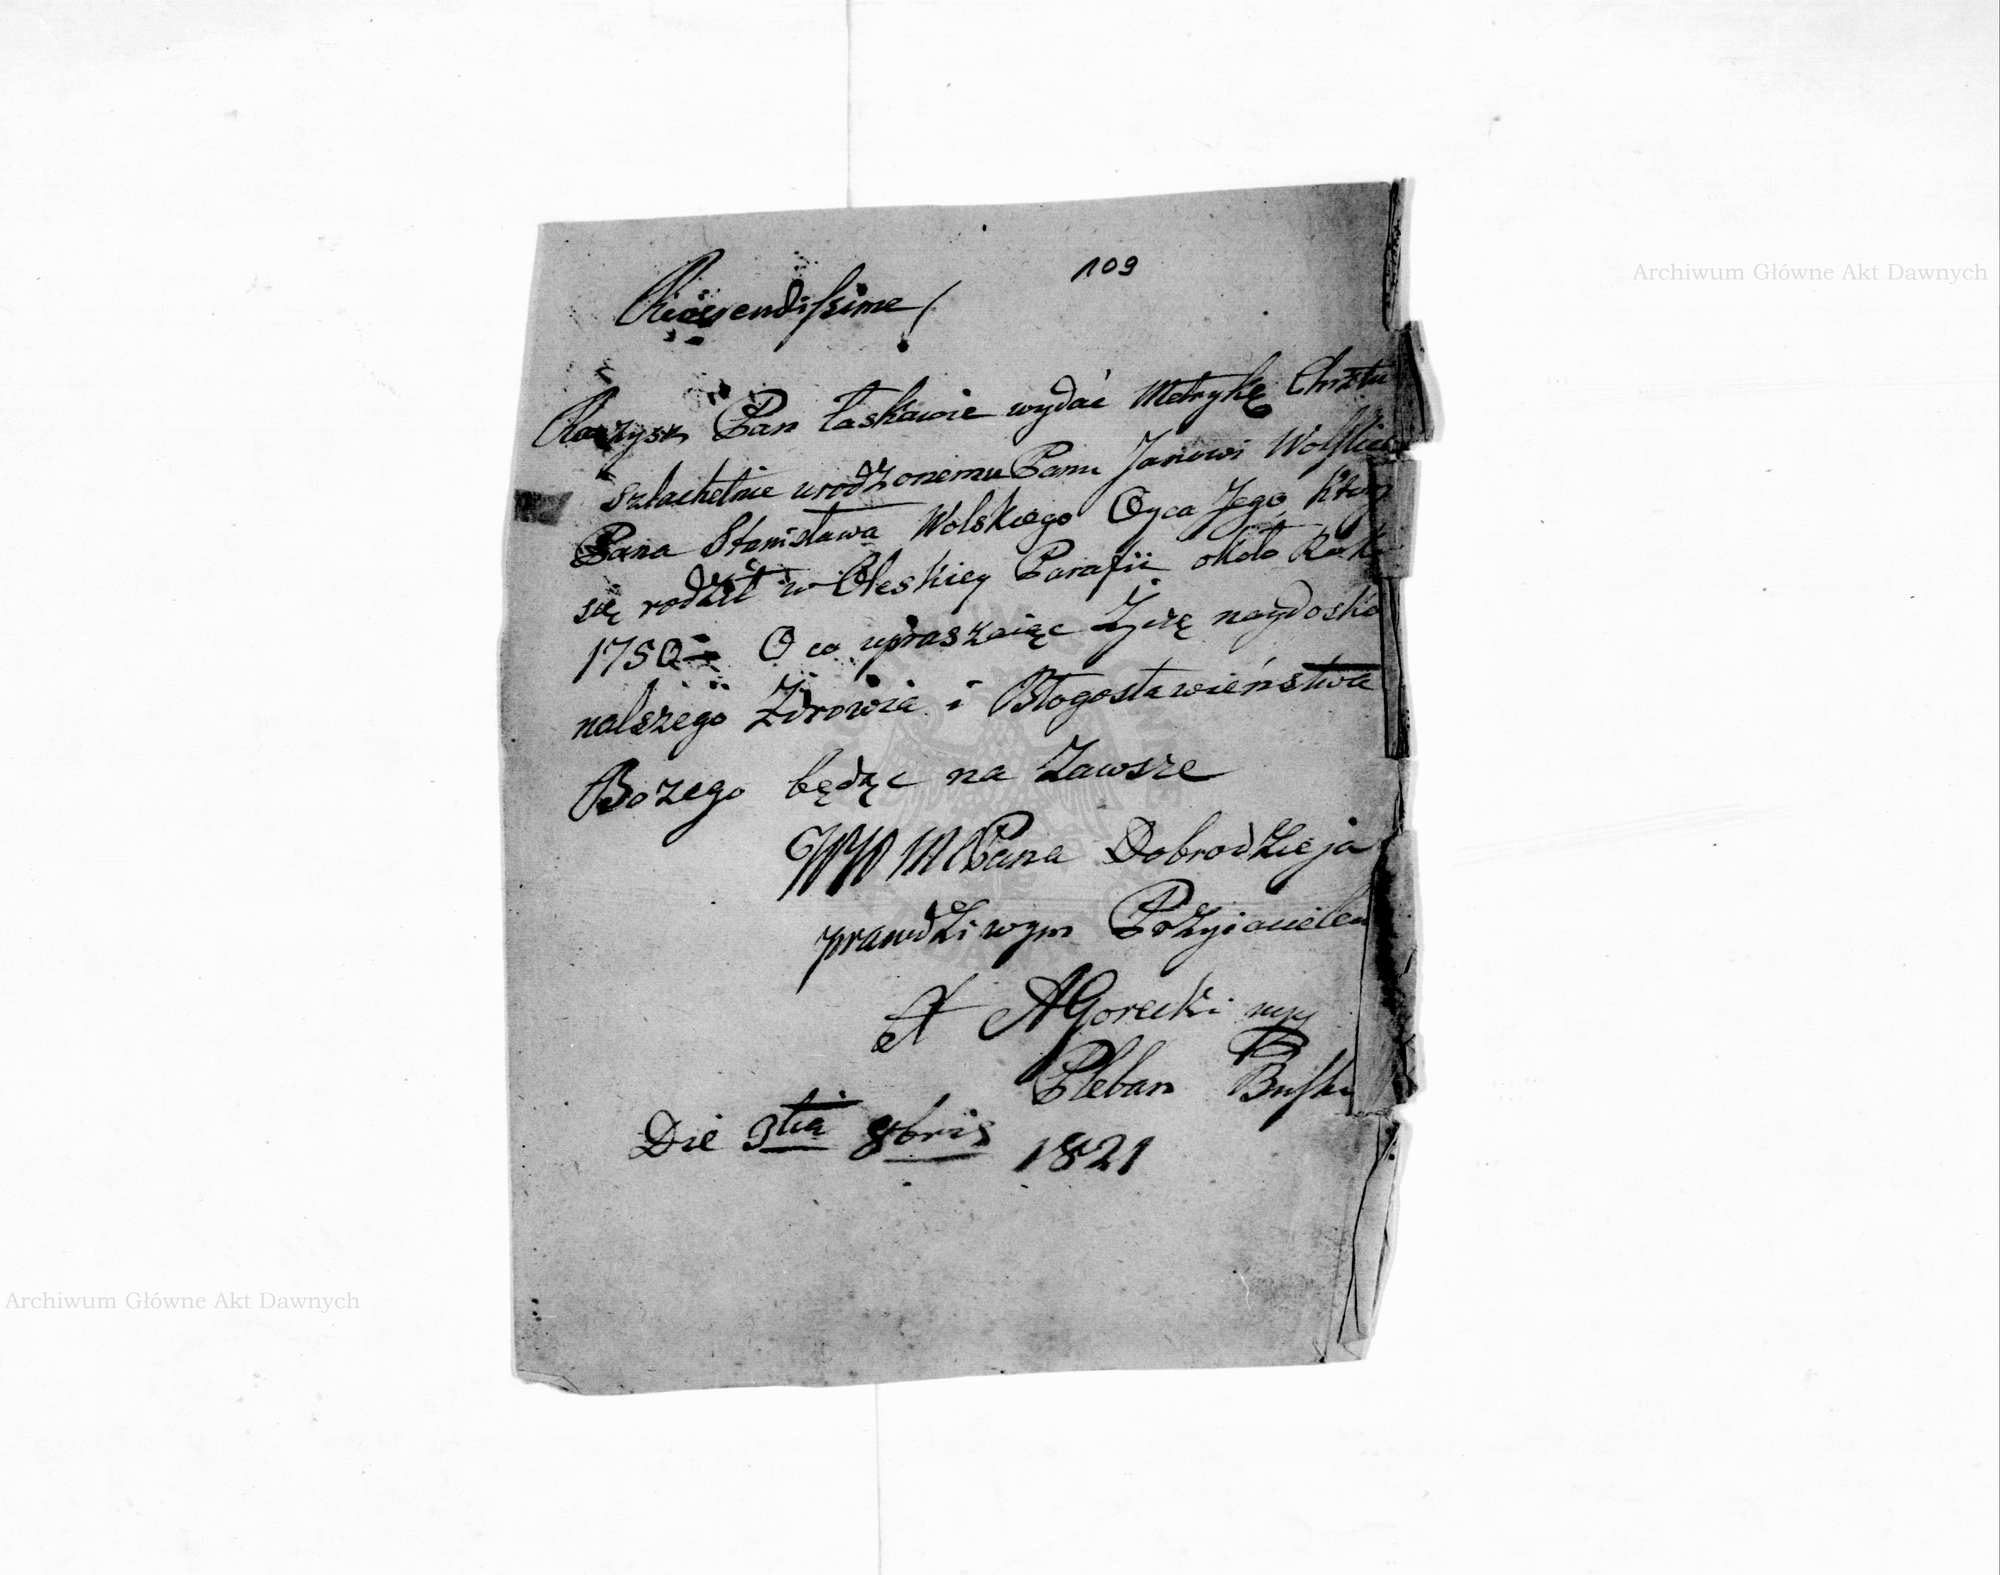 109
Reverendissime!
Raczysz Pan łaskawie wydać Metrykę Chrztu
szlachetnie urodzonemu Panu Janowi
Pana Stanisława Wolskiego Oyca Jego
się rodził w Oleskiey Parafii około
1750 O co upraszaiąc Życzę naydosko
nalszego Zdrowia i Błogosławieństwa
Bozego będąc na Zawsze
WWMPana Dobrodzieja
prawdziwym
X AGorecki mp
Pleban
Die 3tia 8bris 1821
Archiwum Główne Akt Dawnych
Archiwum Główne Akt Dawnych